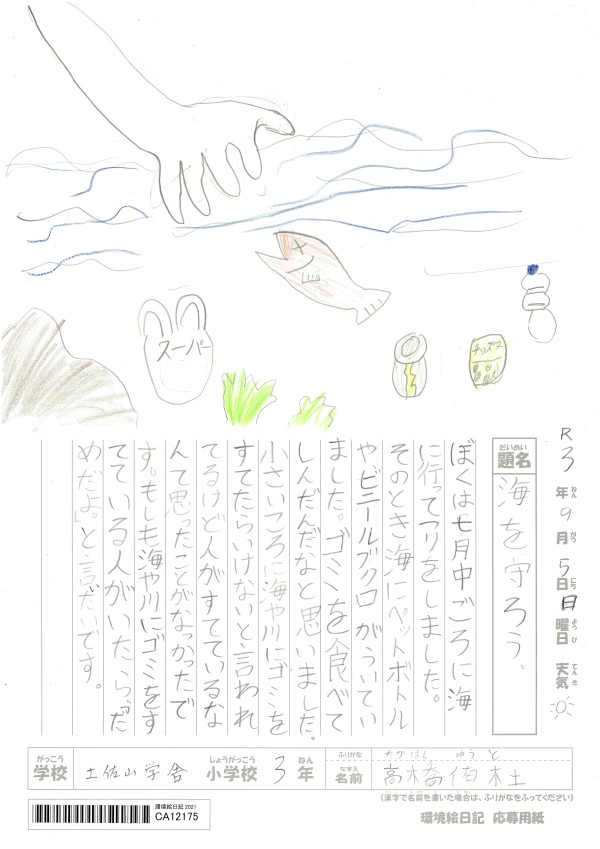 スーパー
チップス
R3年9月5日日曜日 天気
ねん がつ にち ようび てんき
だいめい
題名 海を守ろう。
ぼくは七月中ごろに海
に行ってつりをしました。
そのとき海にペットボトル
や、ビニールブクロがういてい
ました。ゴミを食べて
しんだんだなと思いました。
小さいころに海や川にゴミを
すてたらいけないと言われ
てるけど人がすてているな
んて思ったことがなかったで
す。もしも海や川にゴミをす
てている人がいたら、「だ
めだよ。」と言いたいです。
がっこう しょうがっこう ねん ふりがな たかはし ゆうと
学校 土佐山学舎 小学校 3年 なまえ 名前 高橋侑杜
(漢字で名前を書いた場合は、ふりがなをふってください)
環境絵日記2021
CA12175
環境絵日記 応募用紙